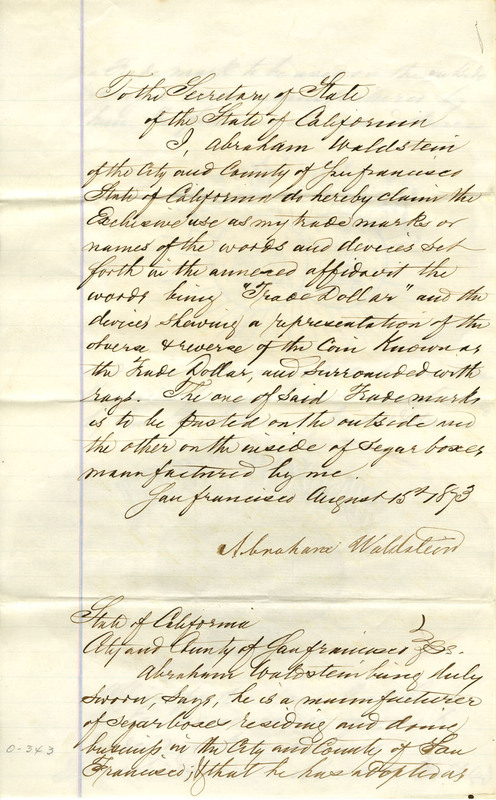 To the Secretary of State
of the State of California
I, Abraham Waldstein
of the City and County of San Francisco
State of California do hereby claim the
Exclusive use as my trade marks or
names of the words and devices set
forth in the annexed affidavit the
words being "Trade Dollar" and the
devices shewing a representation of the
obverse & reverse of the Coin Known as
the Trade Dollar, and surrounded with
rays. The one of said Trade marks
is to be pasted on the outside and
the other on the inside of Segar boxes
manufactured by me.
San Francisco August 15th 1873
Abraham Waldstein
State of California
City and County of San Francisco } ss.
Abraham Waldstein being duly
sworn, says, he is a manufacturer
of Segar boxes residing and doing
business in the City and County of San
Francisco; that he has adopted as
0-343